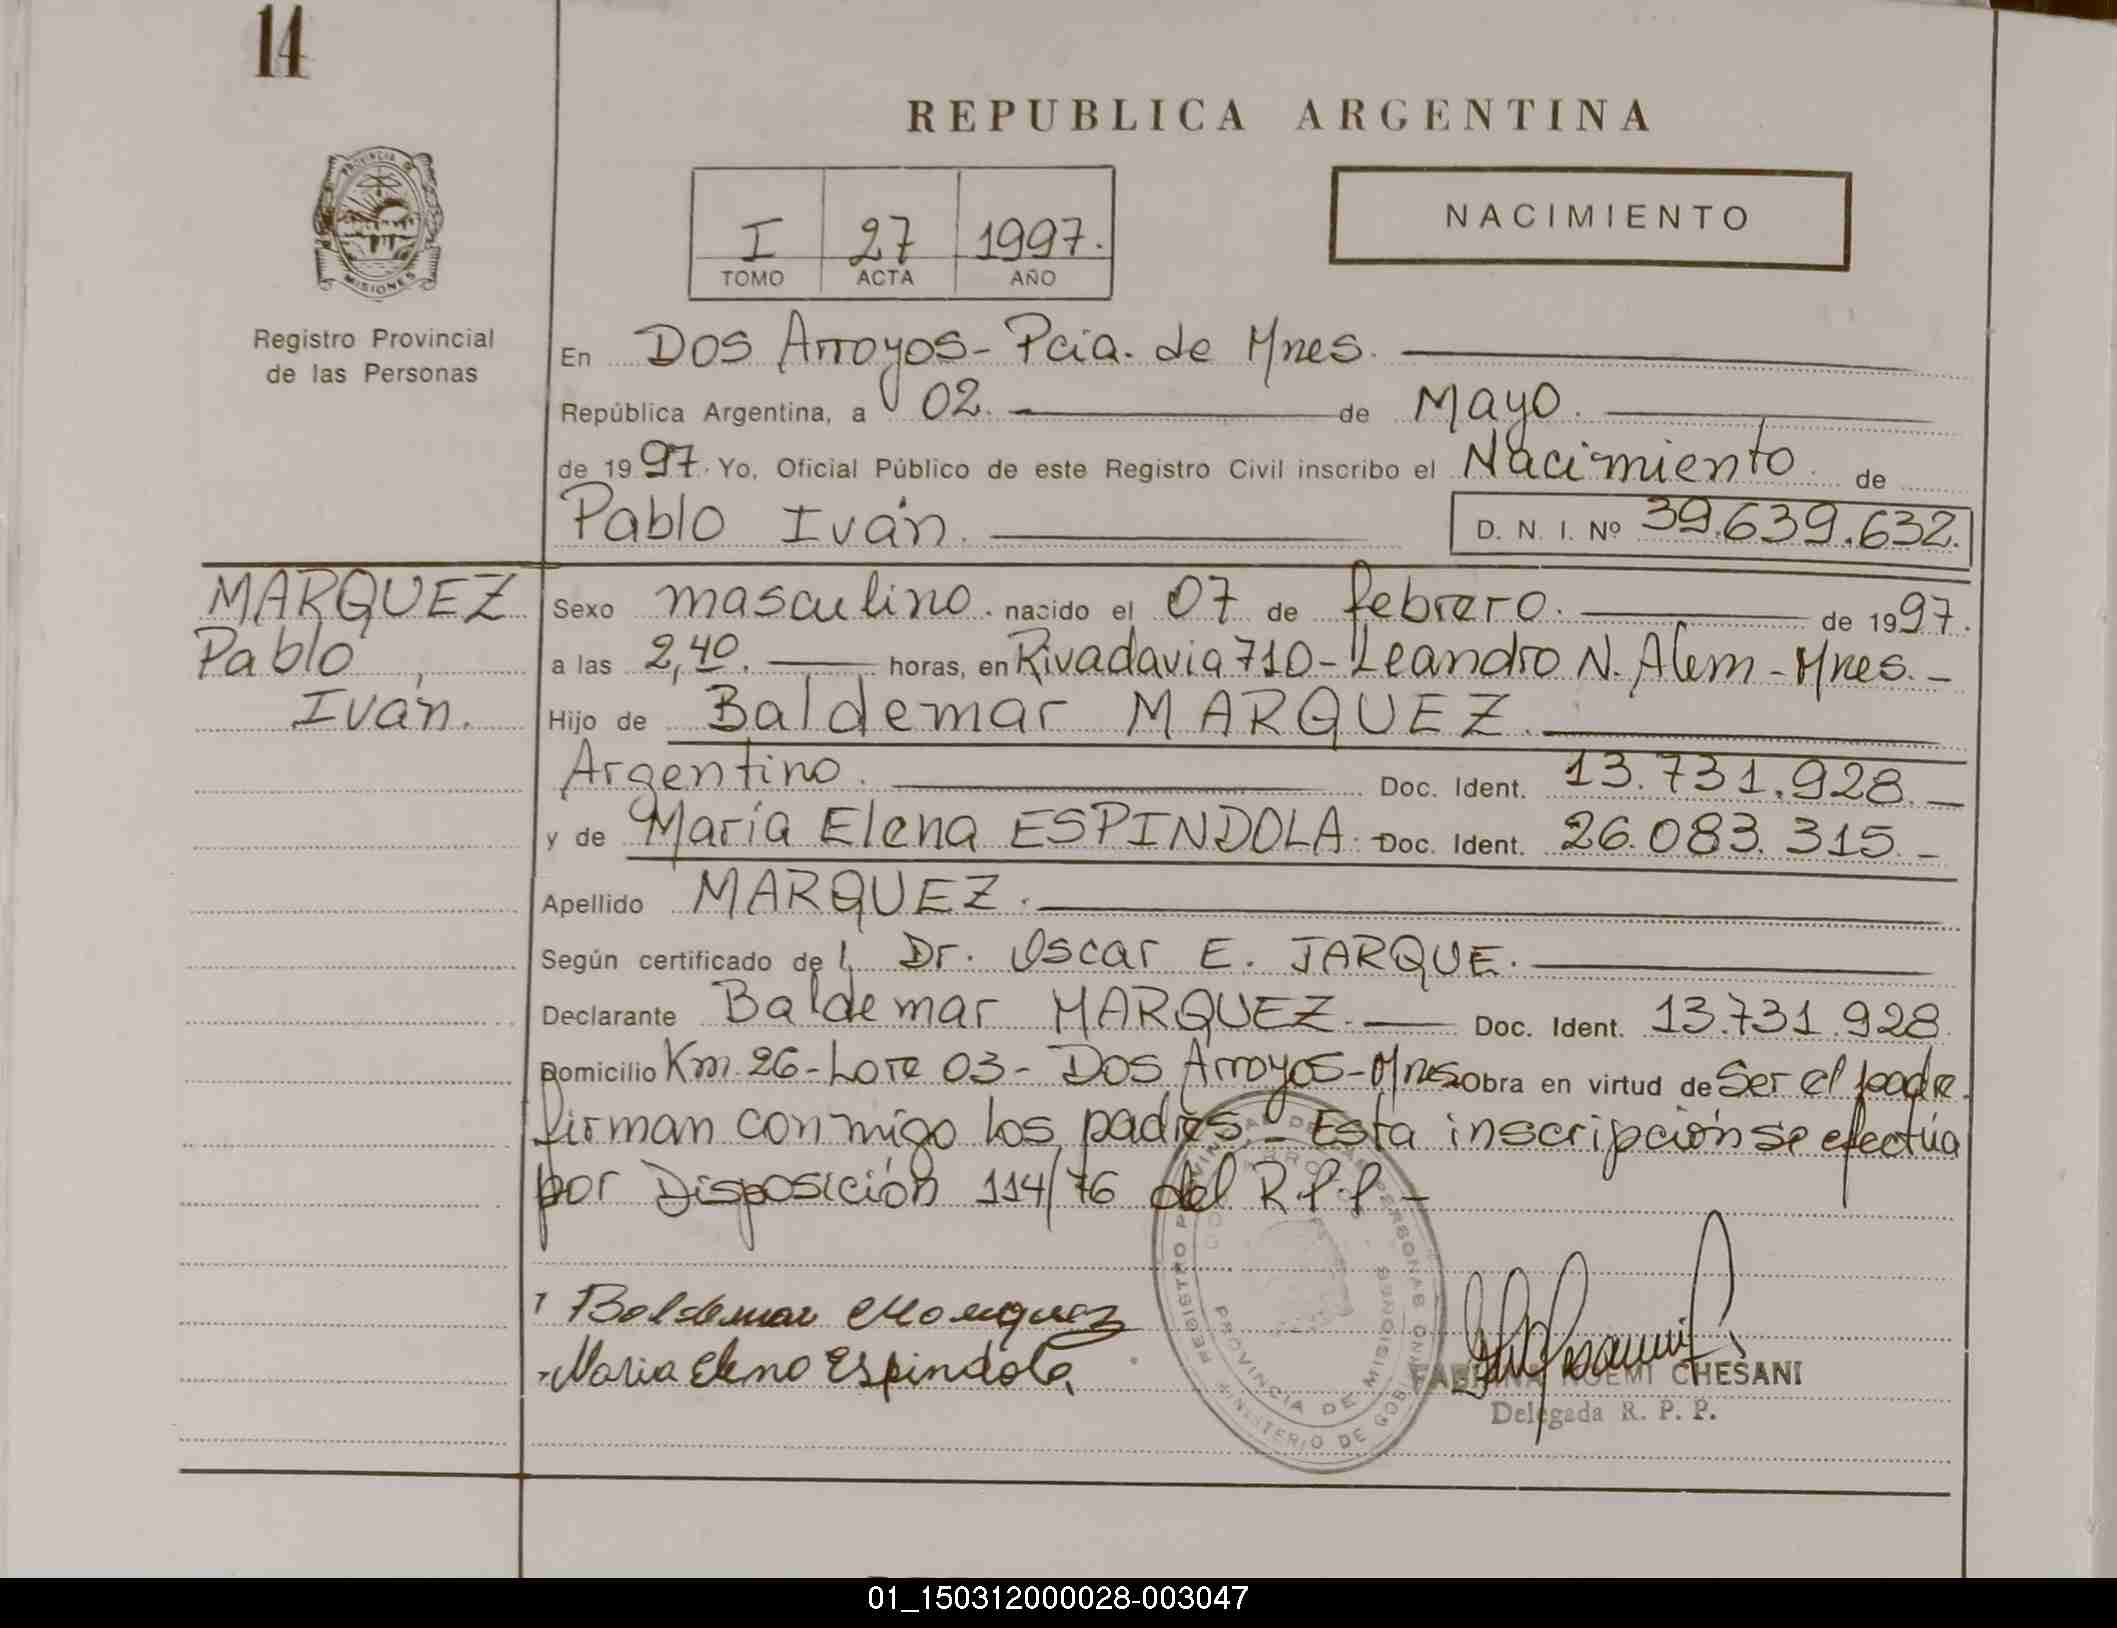 14
REPUBLICA ARGENTINA
PROVINCIA DE
MISIONES
Registro Provincial
de las Personas
I 27 1997.
TOMO ACTA AÑO
NACIMIENTO
En Dos Arroyos - Pcia. de Mnes.
República Argentina, a 02. de Mayo.
de 1997. Yo, Oficial Público de este Registro Civil inscribo el Nacimiento de
Pablo Iván. D. N. I. Nº 39.639.632.
MARQUEZ
Pablo
Iván.
Sexo masculino. nacido el 07 de febrero. de 1997.
a las 2,40. horas, en Rivadavia 710 - Leandro N. Alem - Mnes. -
Hijo de Baldemar MARQUEZ.
Argentino. Doc. Ident. 13.731.928. -
y de María Elena ESPINDOLA. Doc. Ident. 26.083.315. -
Apellido MARQUEZ.
Según certificado de l Dr. Oscar E. JARQUE.
Declarante Baldemar MARQUEZ. Doc. Ident. 13.731.928
Domicilio Km. 26 - Lote 03 - Dos Arroyos - Mnes obra en virtud de Ser el padre.
firman conmigo los padres. - Esta inscripción se efectúa
por Disposición 114/76 del R.P.P. -
Baldemar Marquez
Maria Elena Espindola
REGISTRO PROVINCIAL DE LAS PERSONAS
PROVINCIA DE MISIONES
MINISTERIO DE GOBIERNO
FABIANA NOEMI CHESANI
Delegada R. P. P.
01_150312000028-003047